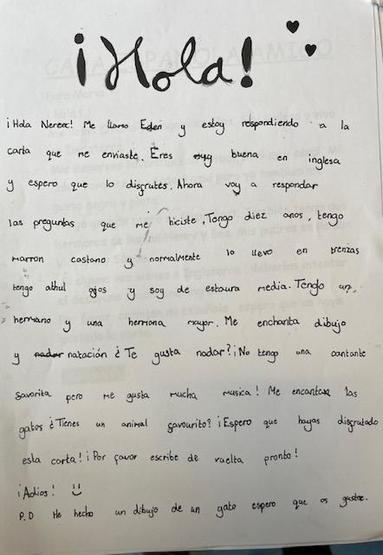 ¡Hola!
¡Hola Nerea! Me llamo Eden y estoy respondiendo a la
carta que me enviaste. Eres muy buena en inglesa
y espero que lo disfrutes. Ahora voy a respondar
las preguntas que me hiciste. Tengo diez anos, tengo
marron castano y normalmente lo llevo en trenzas
tengo athul ojos y soy de estoura media. Tengo un
hermano y una hermana mayor. Me enchanta dibujo
y nadar natación ¿Te gusta nadar? ¡No tengo una cantante
favorita pero me gusta mucha musica! Me encantan las
gatos ¿Tienes un animal favourito? ¡Espero que hayas disfrutado
esta carta! ¡Por favor escribe de vuelta pronto!
¡Adios!
P.D He hecho un dibujo de un gato espero que os guste.